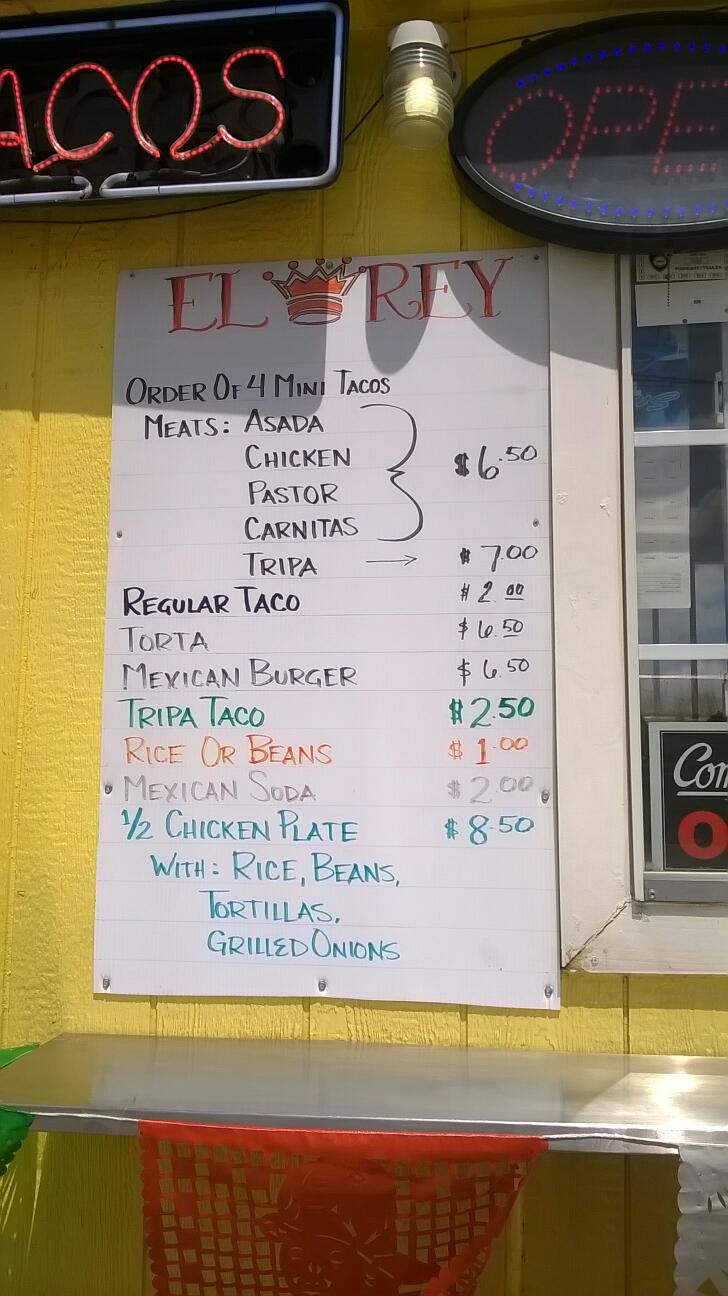 TACOS
OPEN
EL REY
ORDER OF 4 MINI TACOS
MEATS: ASADA
CHICKEN $6.50
PASTOR
CARNITAS
TRIPA → $7.00
REGULAR TACO $2.00
TORTA $6.50
MEXICAN BURGER $6.50
TRIPA TACO $2.50
RICE OR BEANS $1.00
MEXICAN SODA $2.00
1/2 CHICKEN PLATE $8.50
WITH: RICE, BEANS,
TORTILLAS,
GRILLED ONIONS